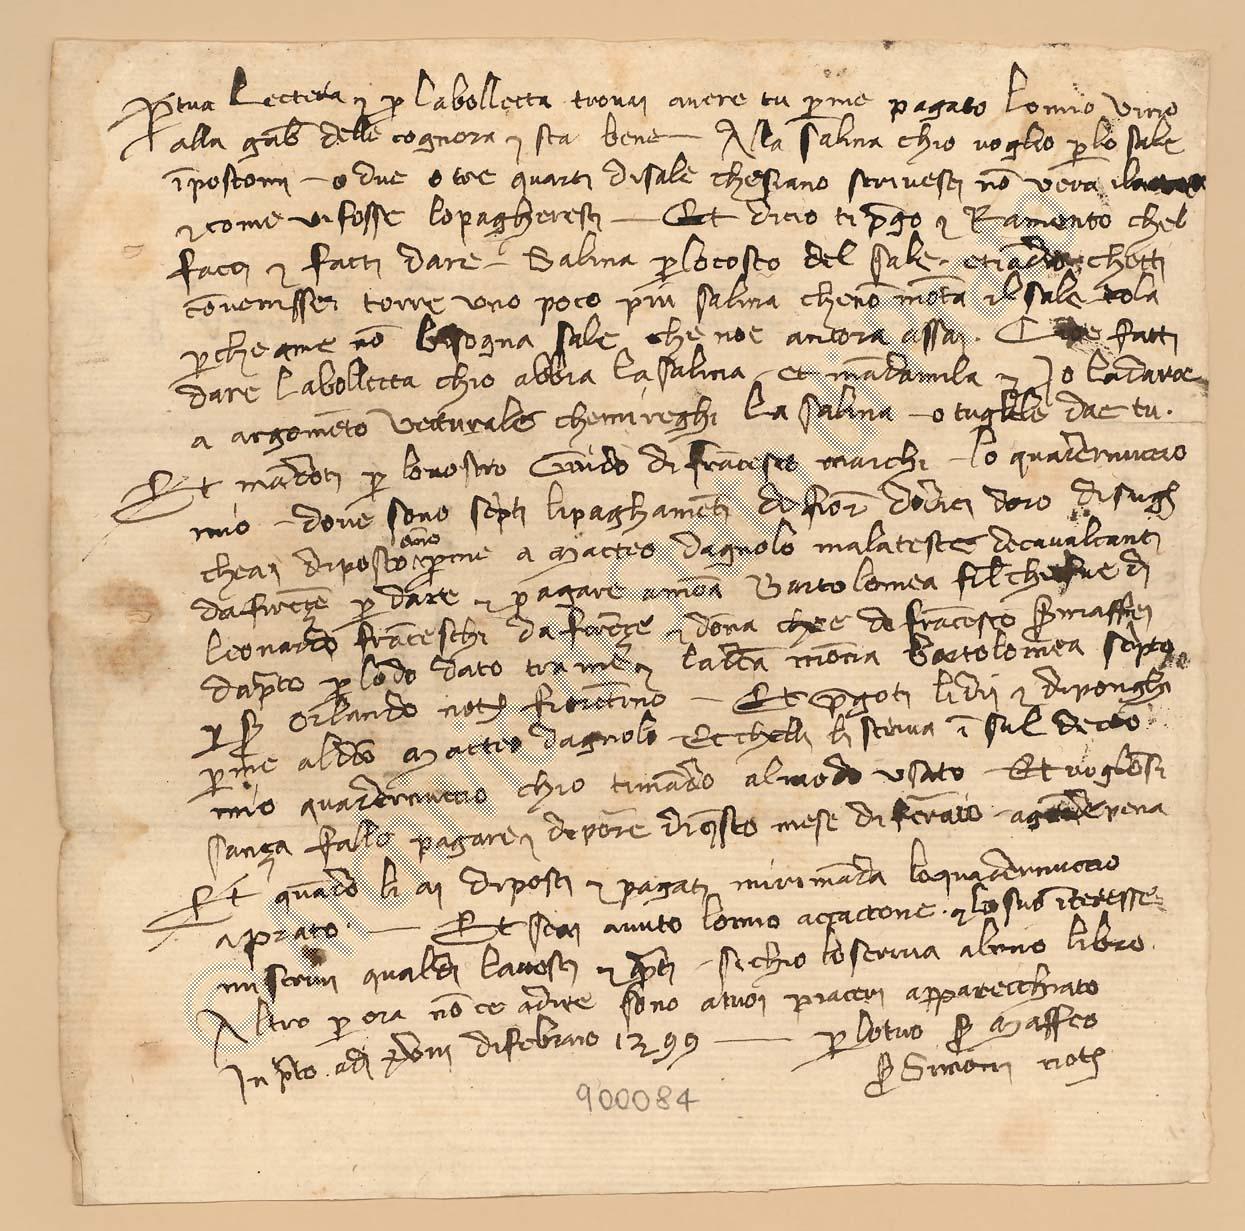 P tua lectera e p la bollecta trovai avere tu p me pagato lo mio vino
alla gab delle cognora e sta bene — Alla salina chio voglio p lo sale
īpostomi — o due o tre quarti di sale che siano scrivesti nō verā
e come vi fosse lo pagheresti — Et dicio ti pgo e Ramento chel
facci e facti dare — Salina p lo costo del sale etiādio chetti
cōvenisse torre uno poco più salina che nō mōta il sale tola
p che a me nō bisogna sale che noe ancora assai. fatti
dare la bollecta chio abbia la salina et māda mila e o la daroe
a argomēto vecturale che mi reghi la salina — o tugliele dae tu.
Et mādoti p lo vostro Guido di frācesco marchi — lo quadernuccio
mio — dove sono scpti li paghamēti di fior dodici doro di sugh
che ai diposto ōño p me a Matteo dagnolo malateste de cavalcanti
da firēçe p dare e p agare a mōa Bartolomea fil che fue di
Leonardo frāceschi da firēçe e dōna chee di frācesco s maffei
da pto p lodo dato tra me e la dcā mōna Bartolomea scpto
p s Orlando not fiorētino — Et pgoti li dii e diponghi
p me al dco Matteo dagnolo — Et chelli li scriva ī sul decto
mio quadernuccio chio ti mādo al modo usato — Et voglōsi
sança fallo pagare e dipōre di qsto mese di febraio — a grāde pena
Et quādo li ai diposti e pagati mi rimāda lo quadernuccio
a prato — Et se ai avuto lo mio accactone. e lo suo īteresse
mi scrivi qual dì lavesti e qti — si chio lo scriva al mio libro.
Altro p ora nō ce a dire sono a tuoi piaceri apparecchiato
In pto. adì xviii di febraio 1399 — p lo tuo s Maffeo
s Simoni not
900084